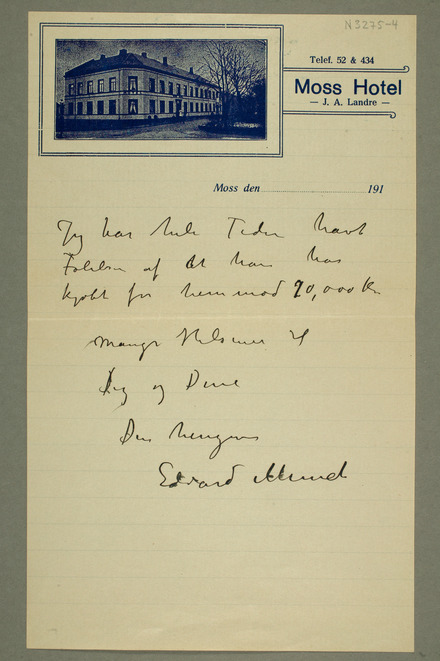 N 3275-4
Telef. 52 & 434
Moss Hotel
— J. A. Landre —
Moss den 191
Jeg har hele Tiden havt
Følelsen af at han har
kjøbt for henimod 90,000 Kr.
Mange Hilsener til
Dig og Dine
Din hengivne
Edvard Munch